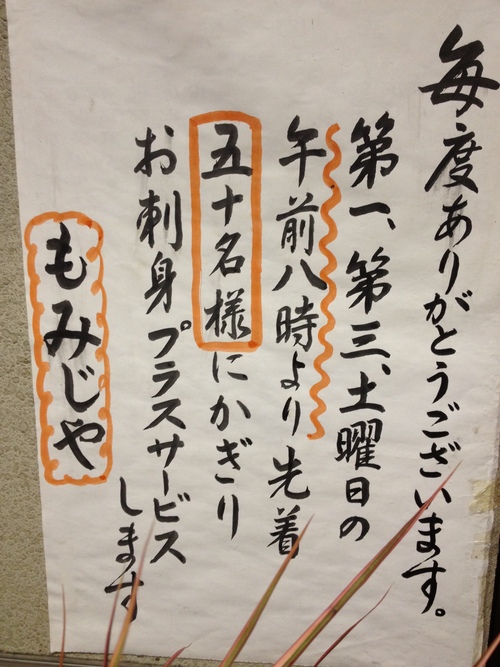 毎度ありがとうございます。
第一、第三、土曜日の
午前八時より先着
五十名様にかぎり
お刺身プラスサービス
します
もみじや